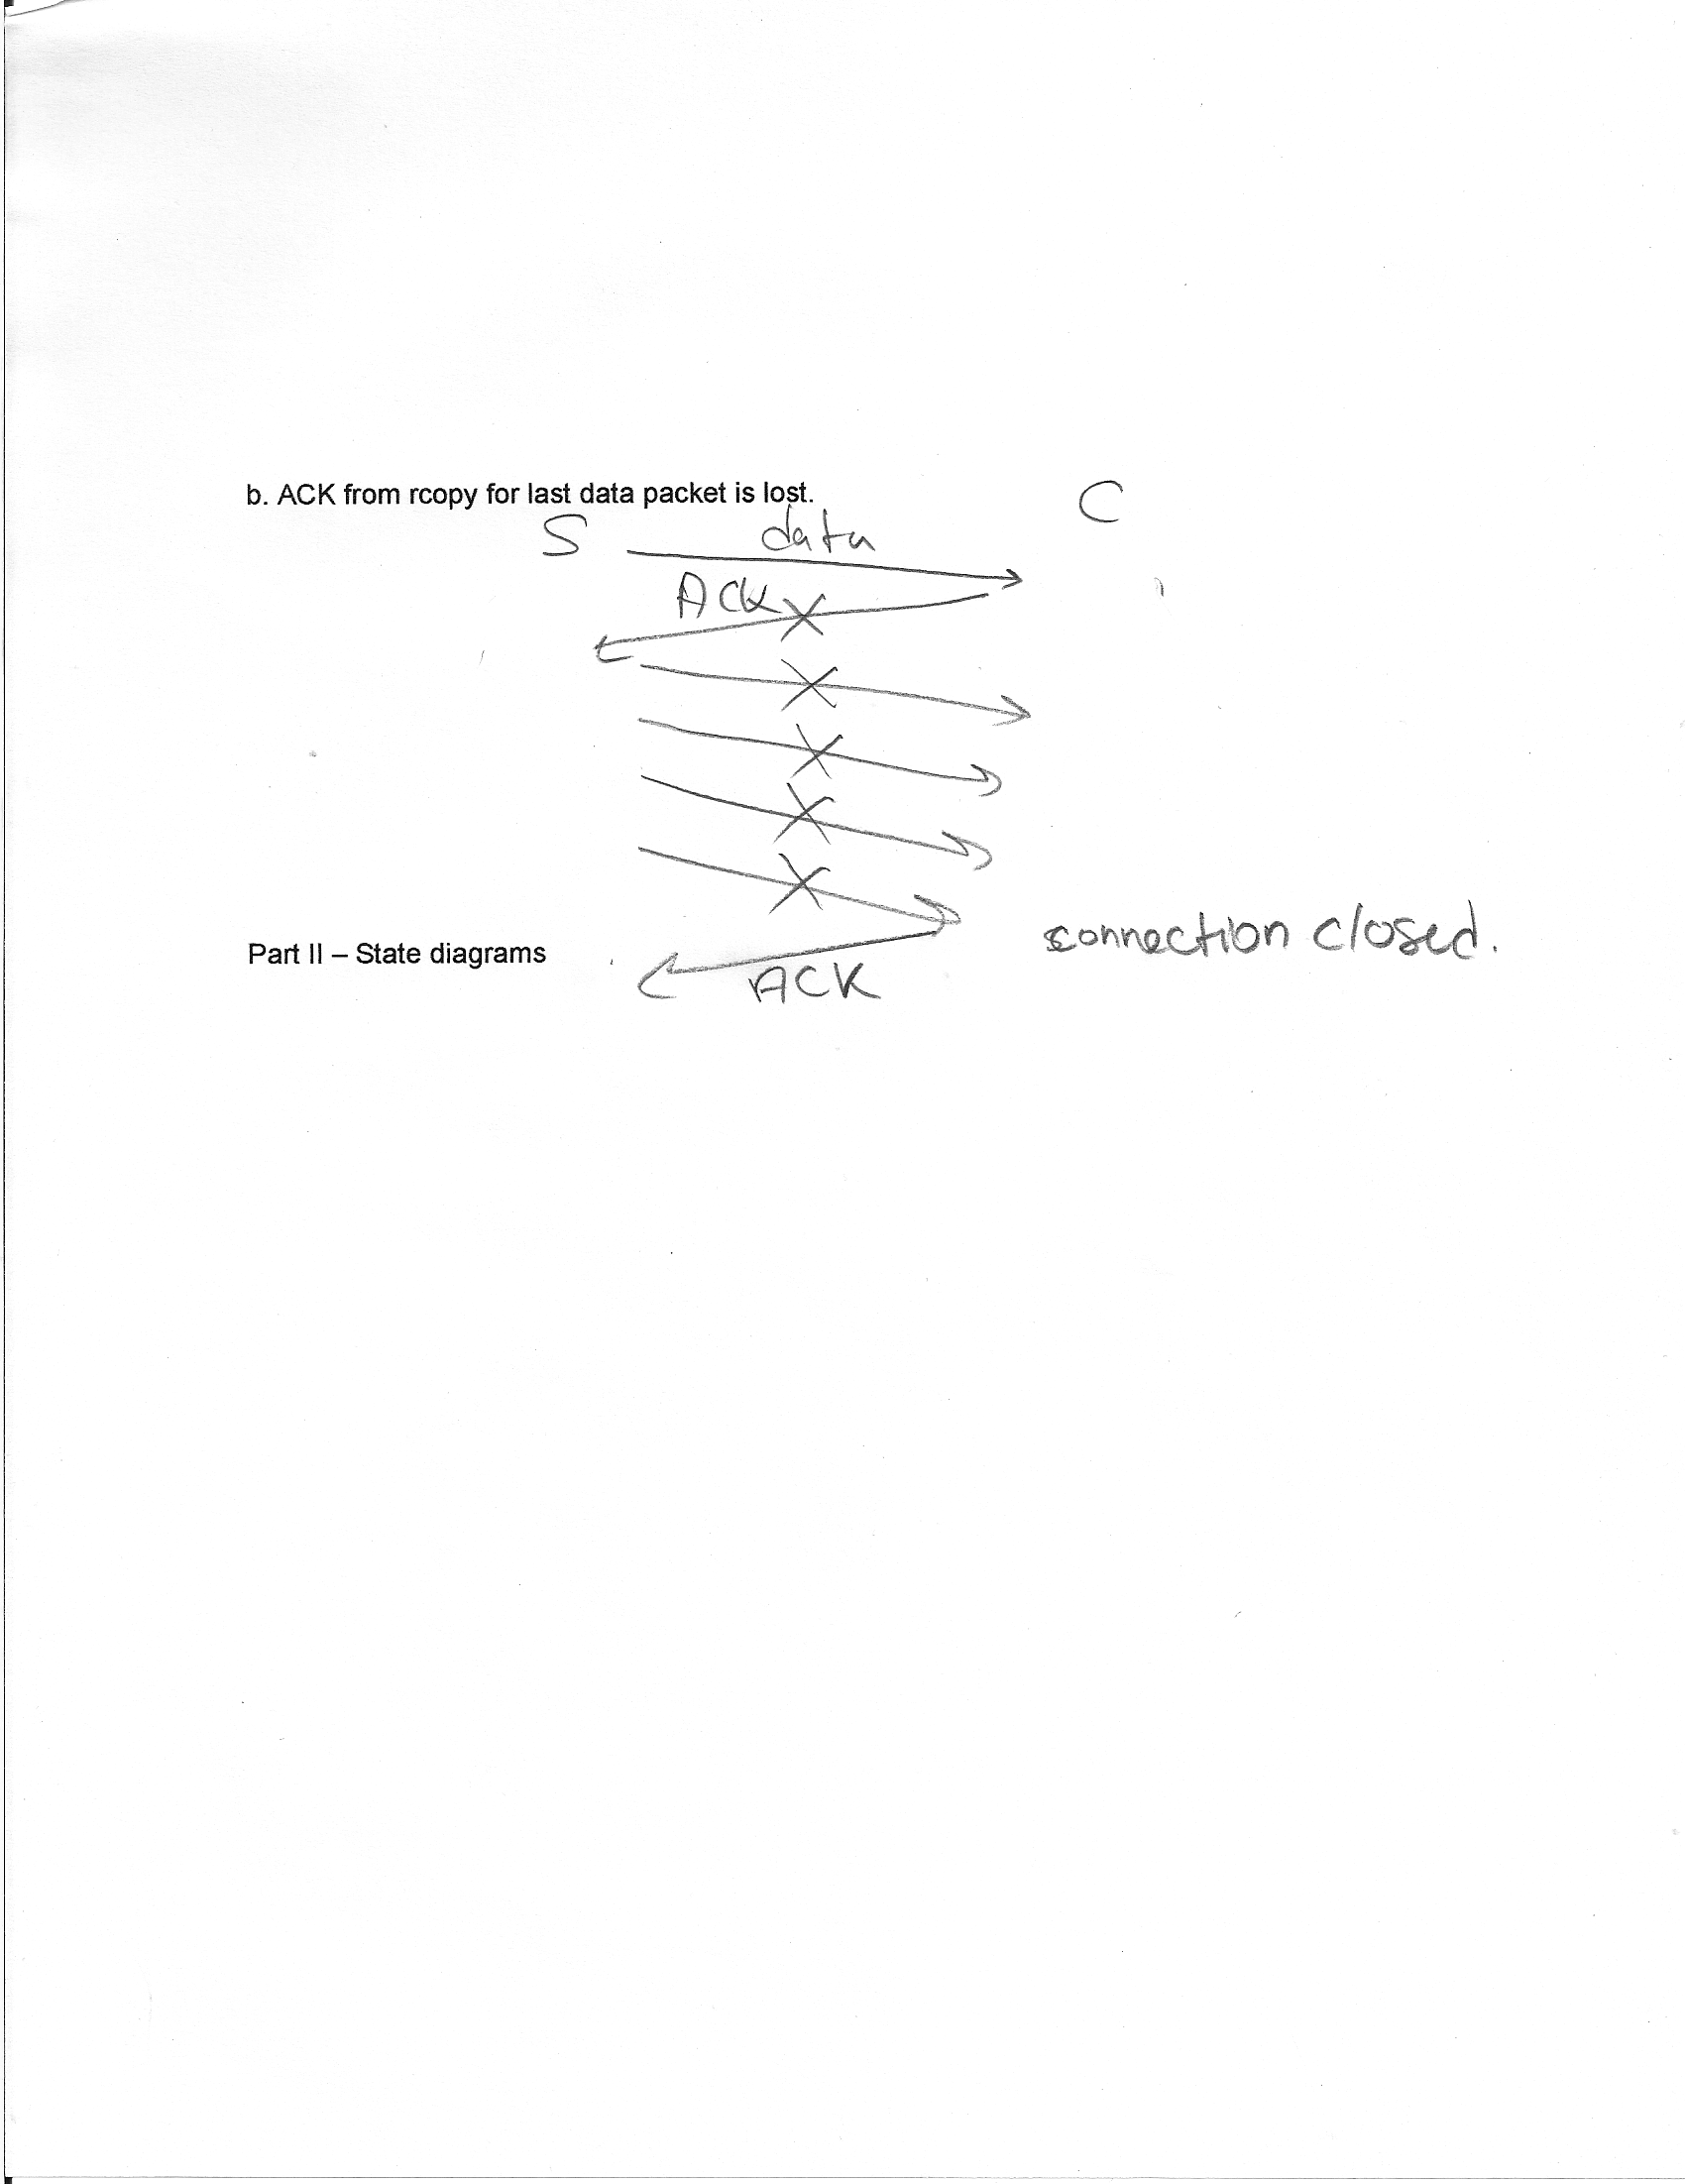 b. ACK from rcopy for last data packet is lost.
S data C
ACK
connection closed.
Part II – State diagrams
ACK